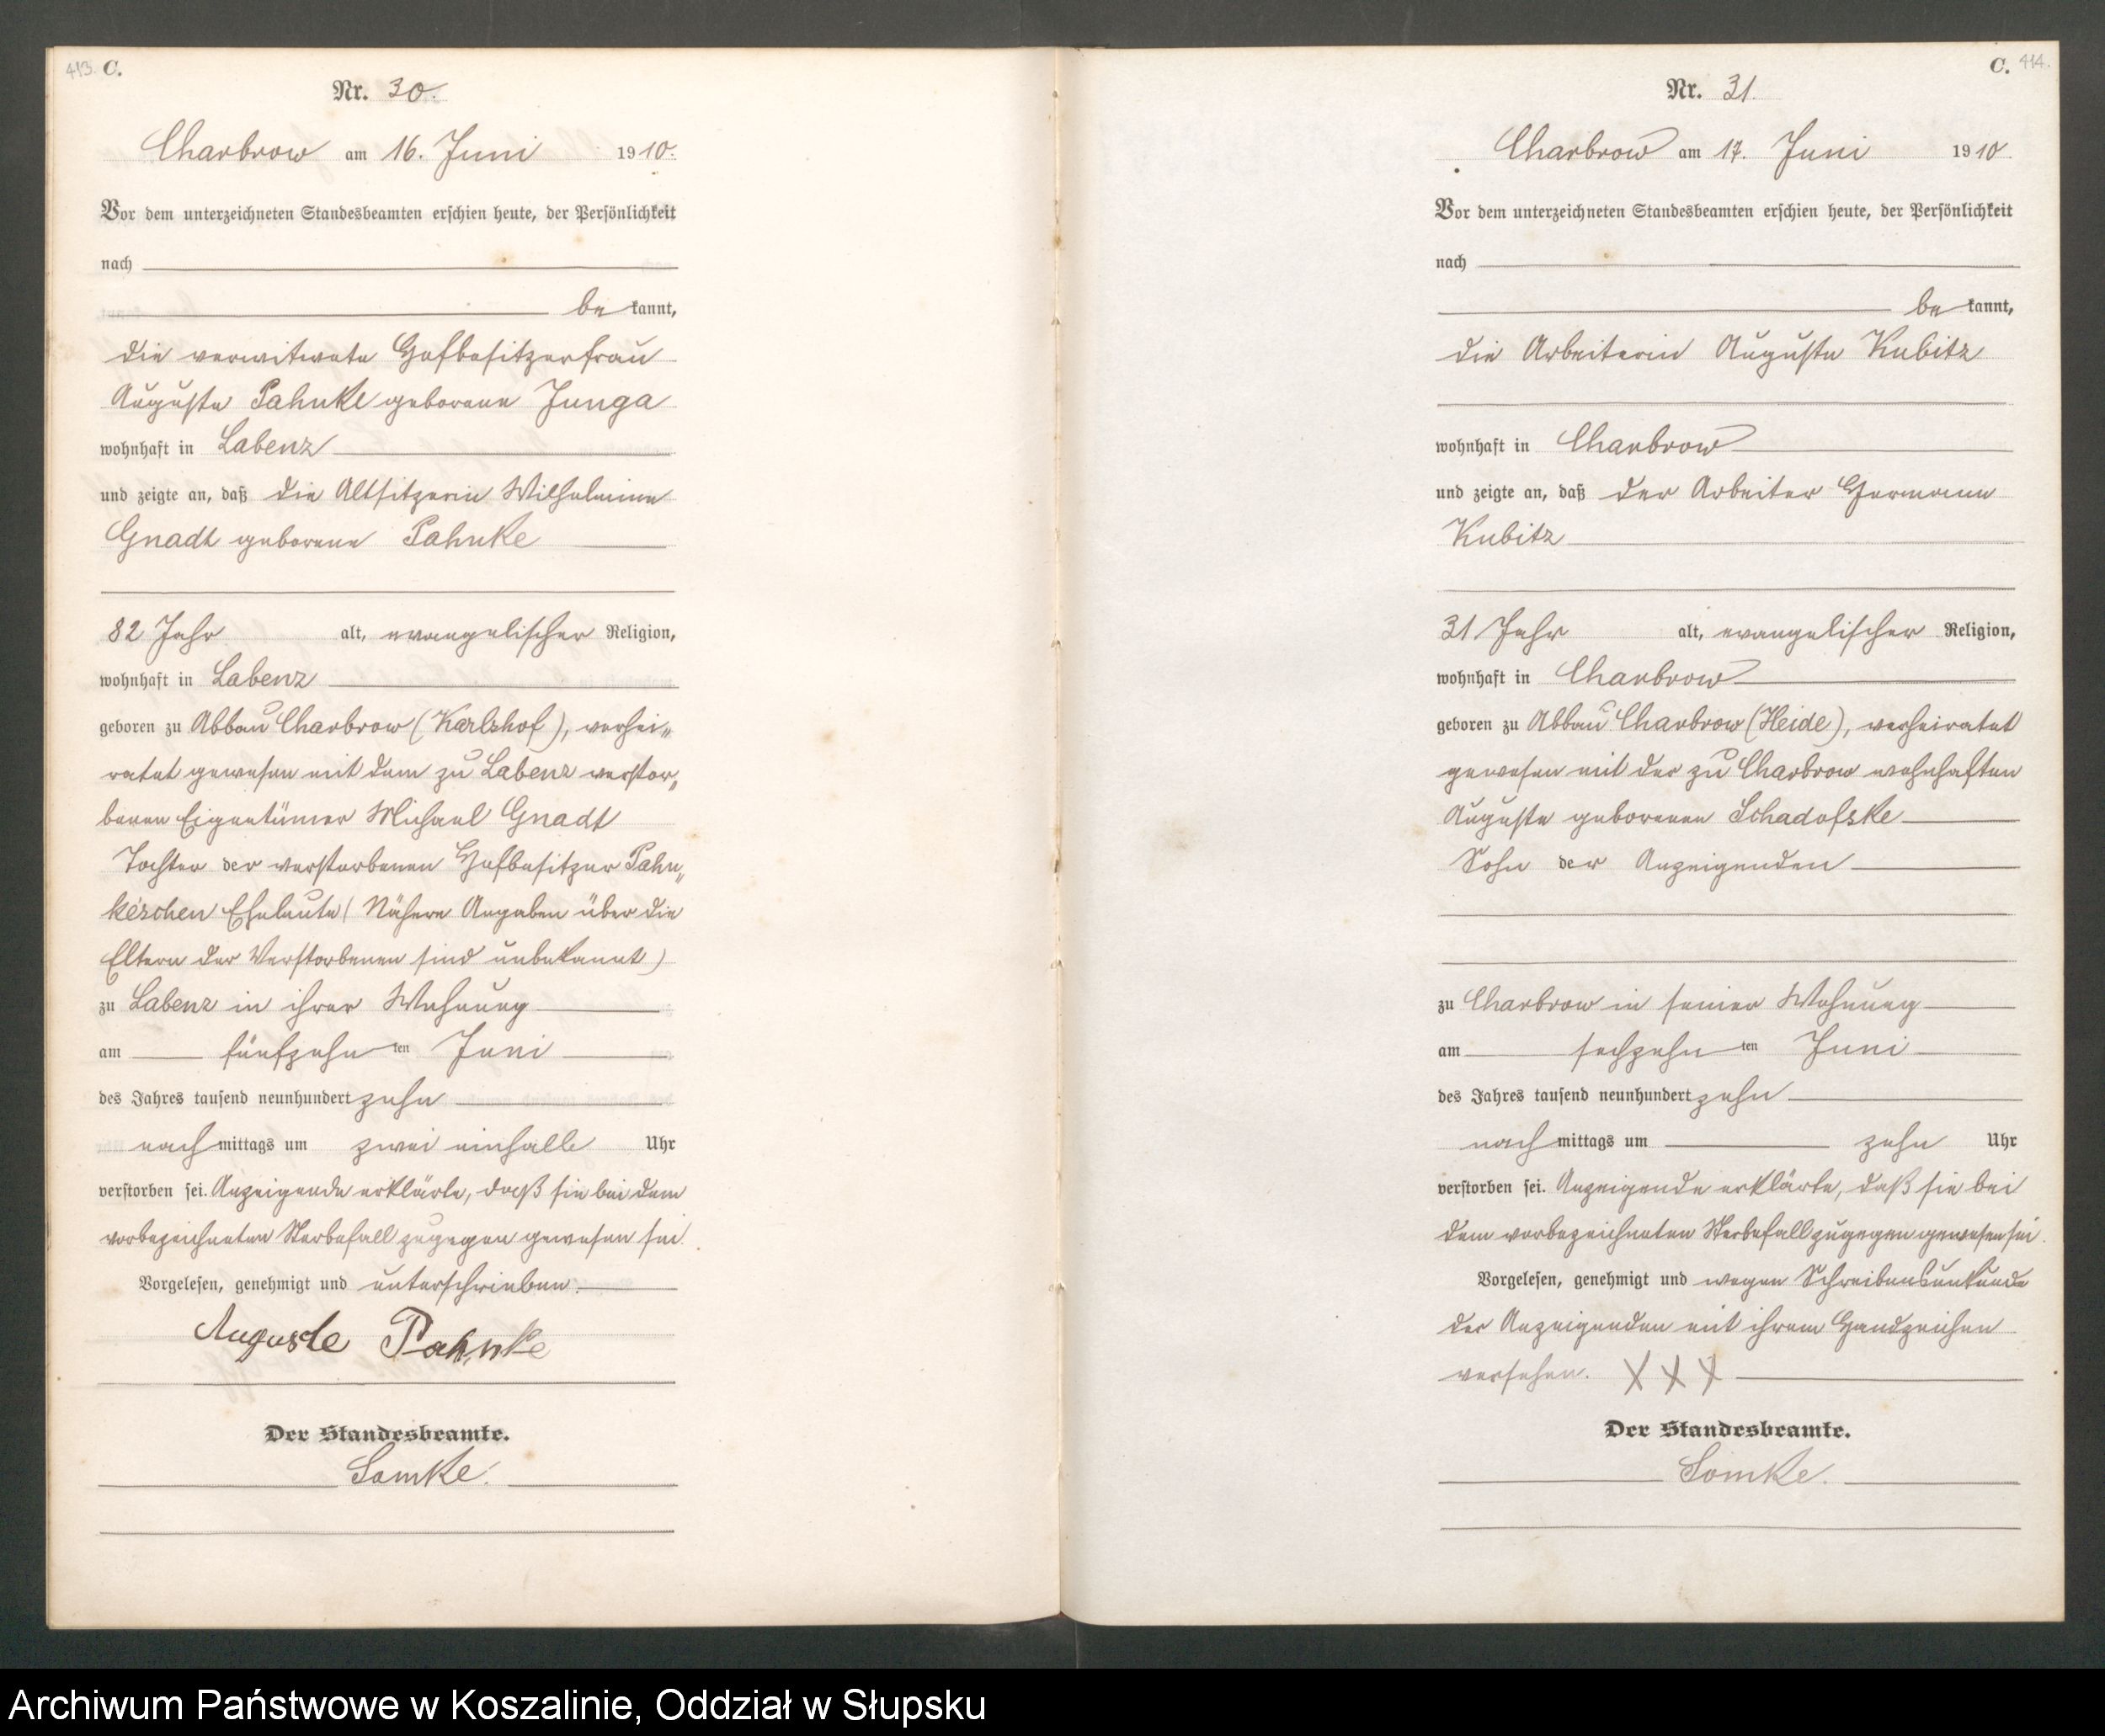 413. C.
Nr. 30.
Charbrow am 16. Juni 1910.
Vor dem unterzeichneten Standesbeamten erschien heute, der Persönlichkeit
nach
be kannt,
die verwitwete Hofbesitzerfrau
Auguste Pahnke geborene Junga
wohnhaft in Labenz
und zeigte an, daß die Altsitzerin Wilhelmine
Gnadt geborene Pahnke
82 Jahr alt, evangelischer Religion,
wohnhaft in Labenz
geboren zu Abbau Charbrow (Karlshof), verhei„
ratet gewesen mit dem zu Labenz verstor„
benen Eigentümer Michael Gnadt
Tochter der verstorbenen Hofbesitzer Pahn„
ke'schen Eheleute (Nähere Angaben über die
Eltern der Verstorbenen sind unbekannt)
zu Labenz in ihrer Wohnung
am fünfzehn ten Juni
des Jahres tausend neunhundert zehn
nach mittags um zwei einhalb Uhr
verstorben sei. Anzeigende erklärte, daß sie bei dem
vorbezeichneten Sterbefall zugegen gewesen sei.
Vorgelesen, genehmigt und unterschrieben.
Auguste Pahnke
Der Standesbeamte.
Lomke.
C. 414.
Nr. 31.
Charbrow am 17. Juni 1910.
Vor dem unterzeichneten Standesbeamten erschien heute, der Persönlichkeit
nach
be kannt,
die Arbeiterin Auguste Kubitz
wohnhaft in Charbrow
und zeigte an, daß der Arbeiter Hermann
Kubitz
31 Jahr alt, evangelischer Religion,
wohnhaft in Charbrow
geboren zu Abbau Charbrow (Heide), verheiratet
gewesen mit der zu Charbrow wohnhaften
Auguste geborenen Schadofske
Sohn der Anzeigenden
zu Charbrow in seiner Wohnung
am sechzehn ten Juni
des Jahres tausend neunhundert zehn
nach mittags um zehn Uhr
verstorben sei. Anzeigende erklärte, daß sie bei
dem vorbezeichneten Sterbefall zugegen gewesen sei.
Vorgelesen, genehmigt und wegen Schreibensunkunde
der Anzeigenden mit ihrem Handzeichen
versehen. XXX
Der Standesbeamte.
Lomke.
Archiwum Państwowe w Koszalinie, Oddział w Słupsku